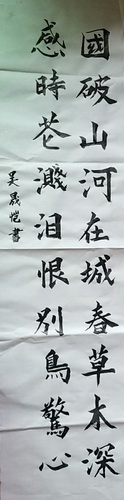 國破山河在城春草木深
感時花濺泪恨別鳥驚心
吴晟恺書